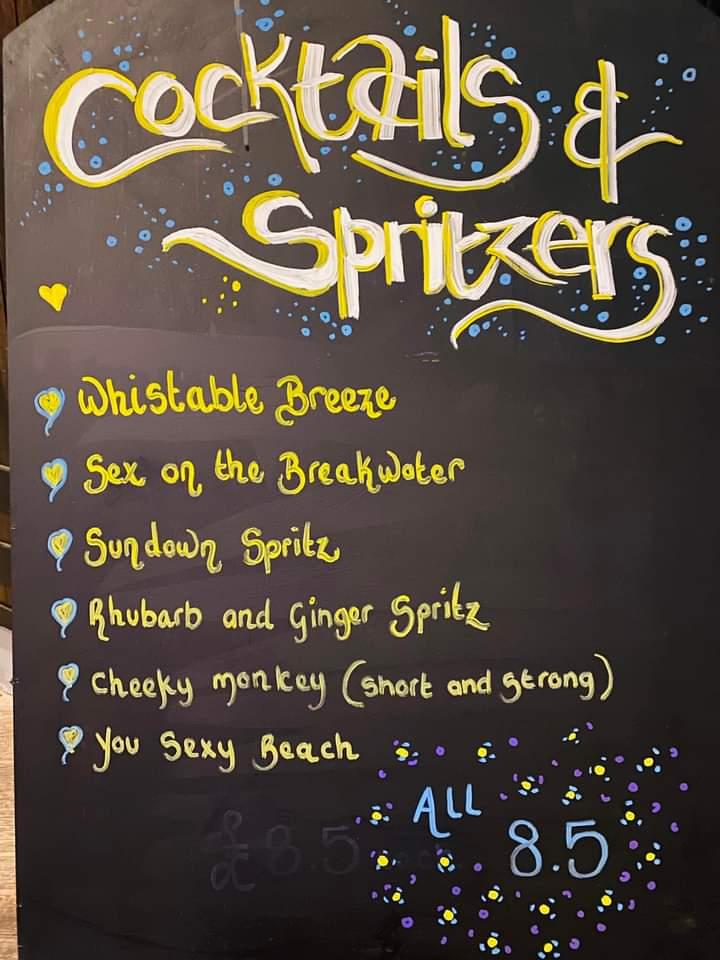 Cocktails &
Spritzers
Whistable Breeze
Sex on the Breakwater
Sundown Spritz
Rhubarb and Ginger Spritz
Cheeky monkey (short and strong)
You Sexy Beach
All
£8.5 8.5